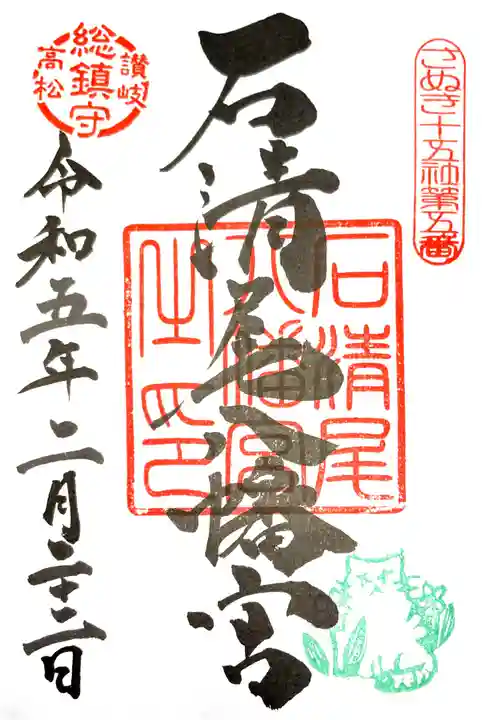 さぬき十五社第五番
石清尾八幡宮
石清尾
八幡宮
之印
讃岐
総鎮守
高松
令和五年二月二十三日